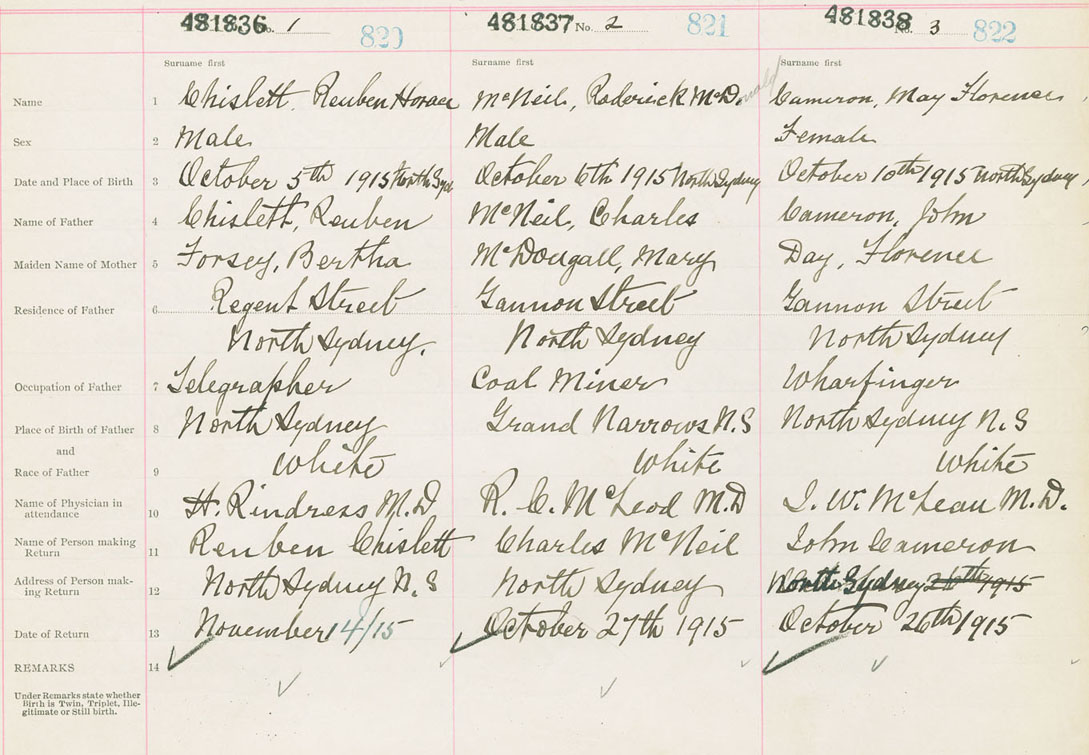 481836 No. 1 820 481837 No. 2 821 481838 No. 3 822
Surname first Surname first Surname first
Name 1 Chislett, Reuben Horace McNeil, Roderick McD.onald Cameron, May Florence
Sex 2 Male Male Female
Date and Place of Birth 3 October 5th 1915 North Syd October 6th 1915 North Sydney October 10th 1915 North Sydney
Name of Father 4 Chislett, Reuben McNeil, Charles Cameron, John
Maiden Name of Mother 5 Forsey, Bertha McDougall, Mary Day, Florence
Residence of Father 6 Regent Street Gannon Street Gannon Street
North Sydney. North Sydney North Sydney
Occupation of Father 7 Telegrapher Coal Miner Wharfinger
Place of Birth of Father 8 North Sydney Grand Narrows N.S North Sydney N.S
and
Race of Father 9 White White White
Name of Physician in attendance 10 H. Rindress M.D R. C. McLeod M.D J. W. McLean M.D.
Name of Person making Return 11 Reuben Chislett Charles McNeil John Cameron
Address of Person making Return 12 North Sydney N.S North Sydney North Sydney 26th 1915
Date of Return 13 November 14/15 October 27th 1915 October 26th 1915
REMARKS 14
Under Remarks state whether
Birth is Twin, Triplet, Ille-
gitimate or Still birth.